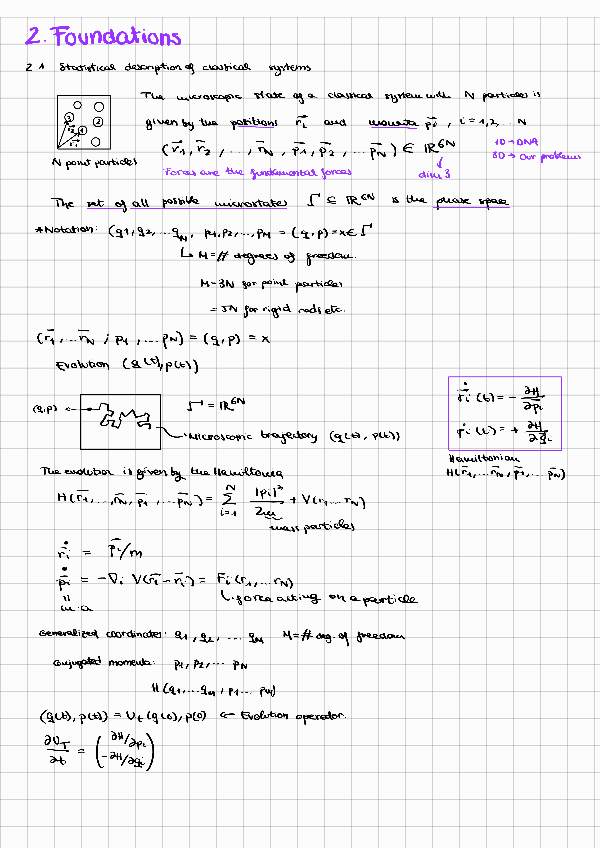 2. Foundations
2.1 Statistical description of classical systems
The microscopic state of a classical system with N particles is
given by the positions r⃗i and momenta p⃗i, i=1,2,...N
(r⃗1, r⃗2, ..., r⃗N, p⃗1, p⃗2, ... p⃗N) ∈ ℝ^6N
1D → DNA
3D → Our problems
N point particles
Forces are the fundamental forces
dim 3
The set of all possible microstates Γ ⊆ ℝ^6N is the phase space
*Notation: (q1, q2, ... qM, p1, p2, ..., pM = (q, p) = x ∈ Γ
↳ M = # degrees of freedom.
M = 3N for point particles
= 5N for rigid rods etc.
(r⃗1, ... r⃗N ; p⃗1, ... p⃗N) = (q, p) = x
Evolution (q(t), p(t))
(q, p) ←
Γ = ℝ^6N
Microscopic trajectory (q(t), p(t))
ṙ⃗i (t) = - ∂H/∂p⃗i
ṗi (t) = + ∂H/∂q⃗i
Hamiltonian
H(r⃗1, ... r⃗N, p⃗1, ... p⃗N)
The evolution is given by the Hamiltonian
H(r⃗1, ..., r⃗N, p⃗1, ... p⃗N) = Σ_{i=1}^{N} |pi|²/2m + V(r1 ... rN)
mass particles
ṙ⃗i = p⃗i/m
ṗ⃗i = -∇i V(r⃗1 - r⃗i) = Fi (r1, ... rN)
↳ force acting on a particle
m·a
Generalized coordinates: q1, q2, ... qM M = # deg. of freedom
Conjugated momenta: p1, p2, ... pN
H(q1, ... qM, p1 ... pM)
(q(t), p(t)) = Ut (q(0), p(0) ← Evolution operator.
∂UT/∂t = (∂H/∂pi
-∂H/∂qi)